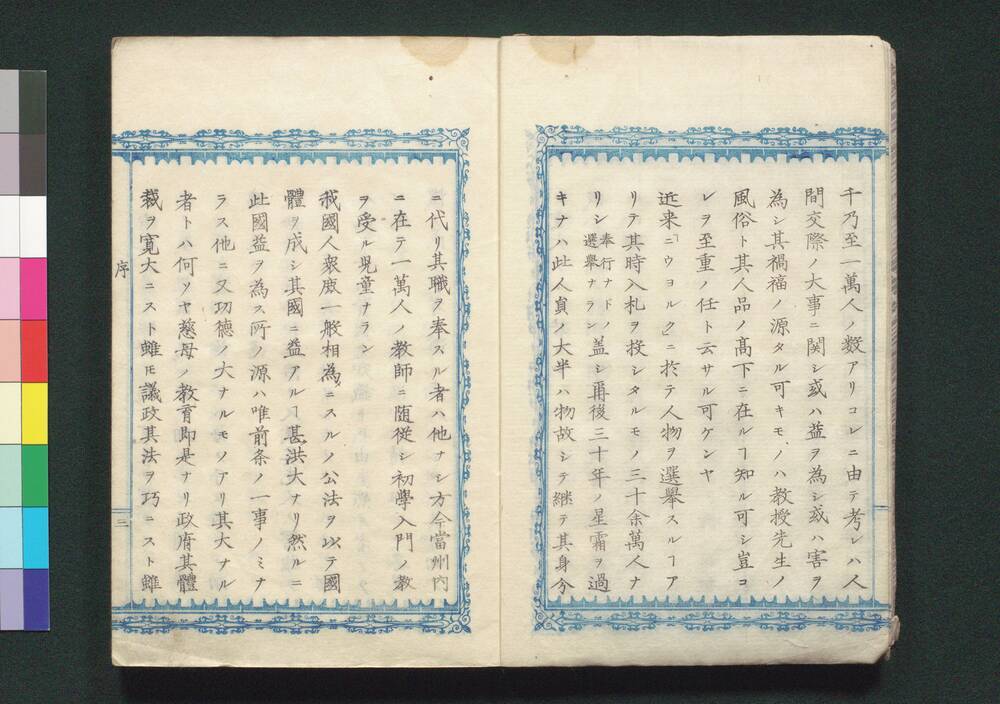 千乃至一萬人ノ数アリコレニ由テ考レハ人
間交際ノ大事ニ関シ或ハ益ヲ為シ或ハ害ヲ
為シ其禍福ノ源タル可キモノハ教授先生ノ
風俗ト其人品ノ髙下ニ在ルヿ知ル可シ豈コ
レヲ至重ノ任ト云サル可ケンヤ
近来ニウヨルクニ於テ人物ヲ選舉スルヿア
リテ其時入札ヲ投シタルモノ三十余萬人ナ
リシ奉行ナドノ選舉ナラン盖シ再後三十年ノ星霜ヲ過
キナハ此人員ノ大半ハ物故シテ継テ其身分
ニ代リ其職ヲ奉スル者ハ他ナシ方今當州内
ニ在テ一萬人ノ教師ニ随従シ初學入門ノ教
ヲ受ル児童ナラン
我國人衆庻一般相為ニスルノ公法ヲ以テ國
體ヲ成シ其國ニ益アルヿ甚洪大ナリ然ルニ
此國益ヲ為ス所ノ源ハ唯前条ノ一事ノミナ
ラス他ニ又功徳ノ大ナルモノアリ其大ナル
者トハ何ソヤ慈母ノ教育即是ナリ政府其體
裁ヲ寛大ニスト雖モ議政其法ヲ巧ニスト雖
序
二